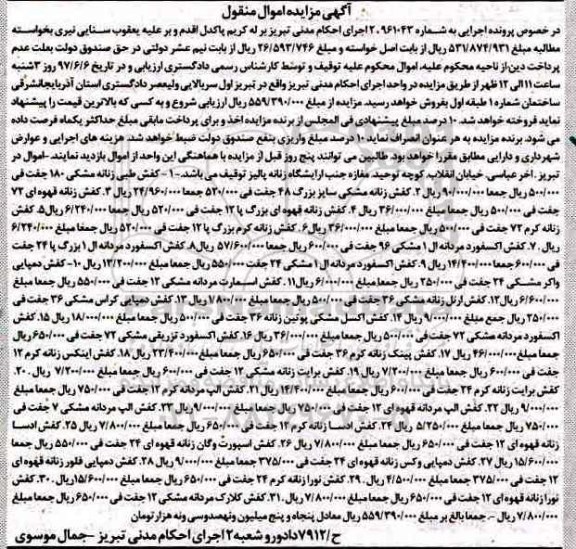 آگهی مزایده اموال منقول
در خصوص پرونده اجرایی به شماره ۲۰۹۶۱۰۴۳ اجرای احکام مدنی تبریز بر له کریم پاکدل اقدم و بر علیه یعقوب سنایی نیری بخواسته
مطالبه مبلغ ۵۳۱/۸۷۴/۹۳۱ ریال از بابت اصل خواسته و مبلغ ۲۶/۵۹۳/۷۴۶ ریال از بابت نیم عشر دولتی در حق صندوق دولت بعلت عدم
پرداخت دین،از ناحیه محکوم علیه، اموال محکوم علیه توقیف و توسط کارشناس رسمی دادگستری ارزیابی و در تاریخ ۹۷/۶/۶ روز ۳شنبه
ساعت ۱۱ الی ۱۲ ظهر از طریق مزایده در واحد اجرای احکام مدنی تبریز واقع در تبریز اول سربالایی ولیعصر دادگستری استان آذربایجانشرقی
ساختمان شماره ۱ طبقه اول بفروش خواهد رسید. مزایده از مبلغ ۵۵۹/۳۹۰/۰۰۰ ریال ارزیابی شروع و به کسی که بالاترین قیمت را پیشنهاد
نماید فروخته خواهد شد. ۱۰ درصد مبلغ پیشنهادی فی المجلس از برنده مزایده اخذ و برای پرداخت مابقی مبلغ حداکثر یکماه فرصت داده
می شود. برنده مزایده به هر عنوان انصراف نماید ۱۰ درصد مبلغ واریزی بنفع صندوق دولت ضبط خواهد شد. هزینه های اجرایی و عوارض
شهرداری و دارایی مطابق مقررا خواهد بود. طالبین می توانند پنج روز قبل از مزایده با هماهنگی این واحد از اموال بازدید نمایند. -اموال در
تبریز .آخر عباسی. خیابان انقلاب. کوچه توحید. مغازه جنب آرایشگاه زنانه پالیز توقیف می باشد. -۱- کفش طبی زنانه مشکی ۱۸۰ جفت فی
۵۰۰/۰۰۰ ریال جمعا ۹۰/۰۰۰/۰۰۰ ریال ۲. کفش زنانه مشکی سایز بزرگ ۴۸ جفت فی ۵۲۰/۰۰۰ جمعا ۲۴/۹۶۰/۰۰۰ ریال ۳. کفش زنانه قهوه ای ۷۲
جفت فی ۵۰۰/۰۰۰ ریال جمعا مبلغ ۳۶/۰۰۰/۰۰۰ ریال ۴. کفش زنانه قهوه ای بزرگ پا ۱۲ جفت فی ۵۲۰/۰۰۰ ریال جمعا ۶/۲۴۰/۰۰۰ ریال۵. کفش
زنانه کرم ۷۲ جفت فی ۵۰۰/۰۰۰ ریال جمعا مبلغ ۳۶/۰۰۰/۰۰۰ ریال۶. کفش زنانه کرم بزرگ پا ۱۲ جفت فی ۵۲۰/۰۰۰ ریال جمعا مبلغ ۶/۲۴۰/۰۰۰
ریال .۷. کفش اکسفورد مردانه ال ۱ مشکی ۹۶ جفت فی ۶۰۰/۰۰۰ ریال جمعا مبلغ ۵۷/۶۰۰/۰۰۰ ریال۸. کفش اکسفورد مردانه ال ۱ بزرگ پا ۲۴ جفت
فی ۶۰۰/۰۰۰ جمعا ۱۴/۴۰۰/۰۰۰ ریال ۹. کفش اکسفورد ال ۱ مشکی ۲۴ جفت ۵۵۰/۰۰۰ ریال جمعا مبلغ ۱۳/۲۰۰/۰۰۰ ریال ۱۰- کفش دمپایی
واکر مشکی ۲۴ جفت فی ۲۵۰/۰۰۰ ریال جمعا مبلغ ۶/۰۰۰/۰۰۰ ریال۱۱. کفش اسمارت مردانه مشکی ۱۲ جفت فی ۵۵۰/۰۰۰ ریال جمعا مبلغ
۶/۶۰۰/۰۰۰ ریال۱۲. کفش ارنل زنانه مشکی ۳۶ جفت فی ۵۰۰/۰۰۰ ریال جمعا مبلغ ۷/۸۰۰/۰۰۰ ریال ۱۳. کفش دمپایی کراس مشکی ۳۶ جفت فی
۲۵۰/۰۰۰ ریال جمع مبلغ ۹/۰۰۰/۰۰۰ ریال ۱۴. کفش اکسل مشکی پوتین زنانه ۳۶ جفت فی ۵۰۰/۰۰۰ ریال جمعا مبلغ ۱۸/۰۰۰/۰۰۰ ریال ۱۵. کفش
اکسفورد مردانه مشکی ۷۲ جفت فی ۵۰۰/۰۰۰ ریال جمعا مبلغ ۳۶/۰۰۰/۰۰۰ ریال ۱۶. کفش اکسفورد تزریقی مشکی ۷۲ جفت فی ۶۵۰/۰۰۰ ریال
جمعا مبلغ ۴۶/۰۰۰/۰۰۰ ریال ۱۷. کفش پینک زنانه کرم ۳۶ جفت فی ۶۵۰/۰۰۰ ریال جمعا مبلغ ۲۳/۴۰۰/۰۰۰ ریال ۱۸. کفش اینکس زنانه کرم ۱۲
جفت فی ۶۰۰/۰۰۰ ریال جمعا مبلغ ۷/۲۰۰/۰۰۰ ریال ۱۹. کفش برایت زنانه مشکی ۱۲ جفت فی ۶۰۰/۰۰۰ ریال جمعا مبلغ ۷/۲۰۰/۰۰۰ ریال .۲۰.
کفش برایت زنانه کرم ۲۴ جفت فی ۶۰۰/۰۰۰ ریال جمعا مبلغ ۱۴/۴۰۰/۰۰۰ ریال ۲۱. کفش الپ مردانه کرم ۱۲ جفت فی ۷۵۰/۰۰۰ ریال جمعا مبلغ
۹/۰۰۰/۰۰۰ ریال ۲۲. کفش الپ مردانه قهوه ای ۱۲ جفت فی ۷۵۰/۰۰۰ ریال جمعا مبلغ ۹/۰۰۰/۰۰۰ ریال ۲۳. کفش الپ مردانه مشکی ۷ جفت فی
۷۵۰/۰۰۰ ریال جمعا مبلغ ۵/۲۵۰/۰۰۰ ریال ۲۴. کفش ادسا زنانه کرم ۱۲ جفت فی ۶۵۰/۰۰۰ ریال جمعا مبلغ ۷/۸۰۰/۰۰۰ ریال ۲۵. کفش ادسا
زنانه قهوه ای ۱۲ جفت فی ۶۵۰/۰۰۰ ریال جمعا مبلغ ۷/۸۰۰/۰۰۰ ریال ۲۶. کفش اسپورت وگان زنانه قهوه ای ۲۴ جفت فی ۵۵۰/۰۰۰ ریال جمعا
۱۵/۶۰۰/۰۰۰ ریال ۲۷. کفش دمپایی وکس زنانه قهوه ای ۲۴ جفت فی ۳۷۵/۰۰۰ جمعا مبلغ ۹/۰۰۰/۰۰۰ ریال ۲۸. کفش دمپایی فلور زنانه قهوه ای
۱۲ جفت فی ۳۷۵/۰۰۰ جمعا مبلغ ۴/۵۰۰/۰۰۰ ریال .۲۹. کفش نورا زنانه کرم ۲۴ جفت فی ۶۵۰/۰۰۰ ریال جمعا مبلغ ۱۵/۶۰۰/۰۰۰ ریال.۳۰. کفش
نورا زنانه قهوه ای ۱۲ جفت فی ۶۵۰/۰۰۰ ریال جمعا مبلغ ۷/۸۰۰/۰۰۰ ریال .۳۱. کفش کلارک مردانه مشکی ۱۲ جفت فی ۶۵۰/۰۰۰ ریال جمعا مبلغ
۷/۸۰۰/۰۰۰ ریال -. جمعا بالغ بر مبلغ ۵۵۹/۳۹۰/۰۰۰ ریال معادل پنجاه و پنج میلیون ونهصدوسی ونه هزار تومان
ح/۷۹۱۲ دادورو شعبه ۲ اجرای احکام مدنی تبریز -جمال موسوی